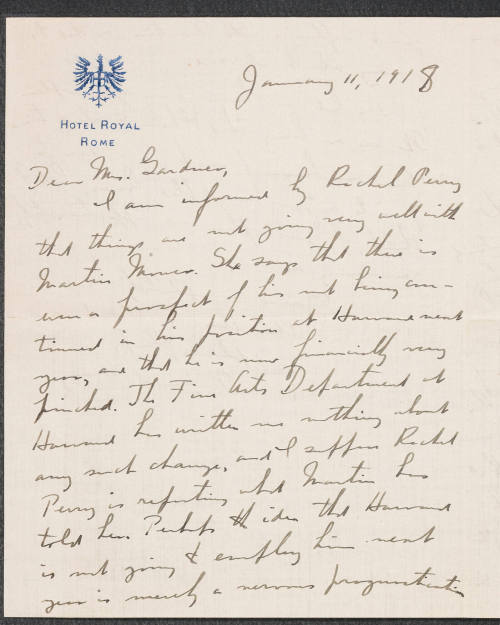 January 11, 1918
HOTEL ROYAL
ROME
Dear Mrs. Gardner,
I am informed by Rachel Perry
that things are not going very well with
Martin Mower. She says that there is
even a prospect of his not being con-
tinued in his position at Harvard next
year, and that he is now financially very
pinched. The Fine Arts Department at
Harvard has written me nothing about
any such change, and I suppose Rachel
Perry is repeating what Martin has
told her. Perhaps the idea that Harvard
is not going to employ him next
year is merely a nervous prognostication